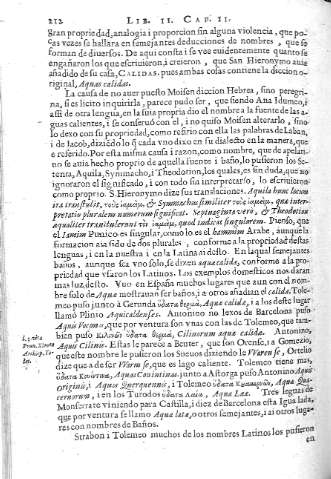 212 LIB. II. CAP. II.
gran propriedad, analogia i proporcion sin alguna violencia, que po-
cas vezes se hallara en semejantes deducciones de nombres, que se
forman de diversos. De aqui consta i se vee evidentemente quanto se
engañaron los que escrivieron, i creieron, que San Hieronymo avia
añadido de su casa, CALIDAS, pues ambas cosas contiene la diccion o-
riginal, Aquas calidas.
La causa de no aver puesto Moisen diccion Hebrea, sino peregri-
na, si es licito inquirirla, parece pudo ser, que siendo Ana Idumeo, i
assi de otra lengua, en la suia propria dio el nombre a la fuente de las a-
guas calientes, i se conservò con el, i no quiso Moisen alterarlo, sino
lo dexo con su propriedad, como refirio con ella las palabras de Laban,
i de Iacob, diziendo lo q̃ cada vno dixo en su dialecto en la manera, que
e referido. Por esta misma causa i razon, como nombre, que de apelati-
vo se avia hecho proprio de aquella fuente i baño, lo pusieron los Se-
tenta, Aquila, Symmacho, i Theodorion, los quales, es sin duda, que no
ignoraron el significado, i con todo sin interpretarlo, lo escrivieron
como proprio. S. Hieronymo dize sus translaciones. Aquila hunc locum
ita transtulit,
pretatur pluralem numerum significat. Septuaginta verò, & Theodotion
aqualiter transtulerunt quod indicat singularem. Pienso, que
el Iamim Punico es singular, como lo es el hammim Arabe, aunque la
formacion aia sido de dos plurales, conforme a la propriedad destas
lenguas, i en la nuestra i en la Latina no desto. En la qual semejantes
baños, aunque sea vno solo, se dizen aquae calidae, conforme a la pro-
priedad que vsaron los Latinos. Los exemplos domesticos nos daran
mas luz desto. Vuo en España muchos lugares que aun con el nom-
bre solo de Aquae mostravan ser baños, i a otros añadian el calidae. Tole-
meo puso junto a Gerunda ὕδατα θερμὰ, Aquae calidae, i a los deste lugar
llamò Plinio Aquicaldenses. Antonino no lexos de Barcelona puso
Aquis Voconis, que por ventura son vnas con las de Tolemeo, que tam-
bien puso ὕδατα θερμὰ, Cilinorum aquae calidae. Antonino
Aquis Cilinis. Estas le parece a Beuter, que son Orense, i a Gomezio,
que este nombre le pusieron los Suevos diziendo le Warense, Ortelio
dize que a de ser Worm se, que es lago caliente. Tolemeo tiene mas,
ὕδατα Aquas Cuintinas junto a Astorga puso Antonino Aquis
originis, i Aquis Querquennis, i Tolemeo ὕδατα Aquae Qua-
cernorum, i en los Turodos ὕδατα λαια, Aquae Laeae. Tres leguas de
Monserrate viniendo para Castilla, i diez de Barcelona esta Igua lada,
que por ventura se llamò Aquae latae, o otros semejantes, i ai otros luga-
res con nombres de Baños.
Strabon i Tolemeo muchos de los nombres Latinos los pusieron
en